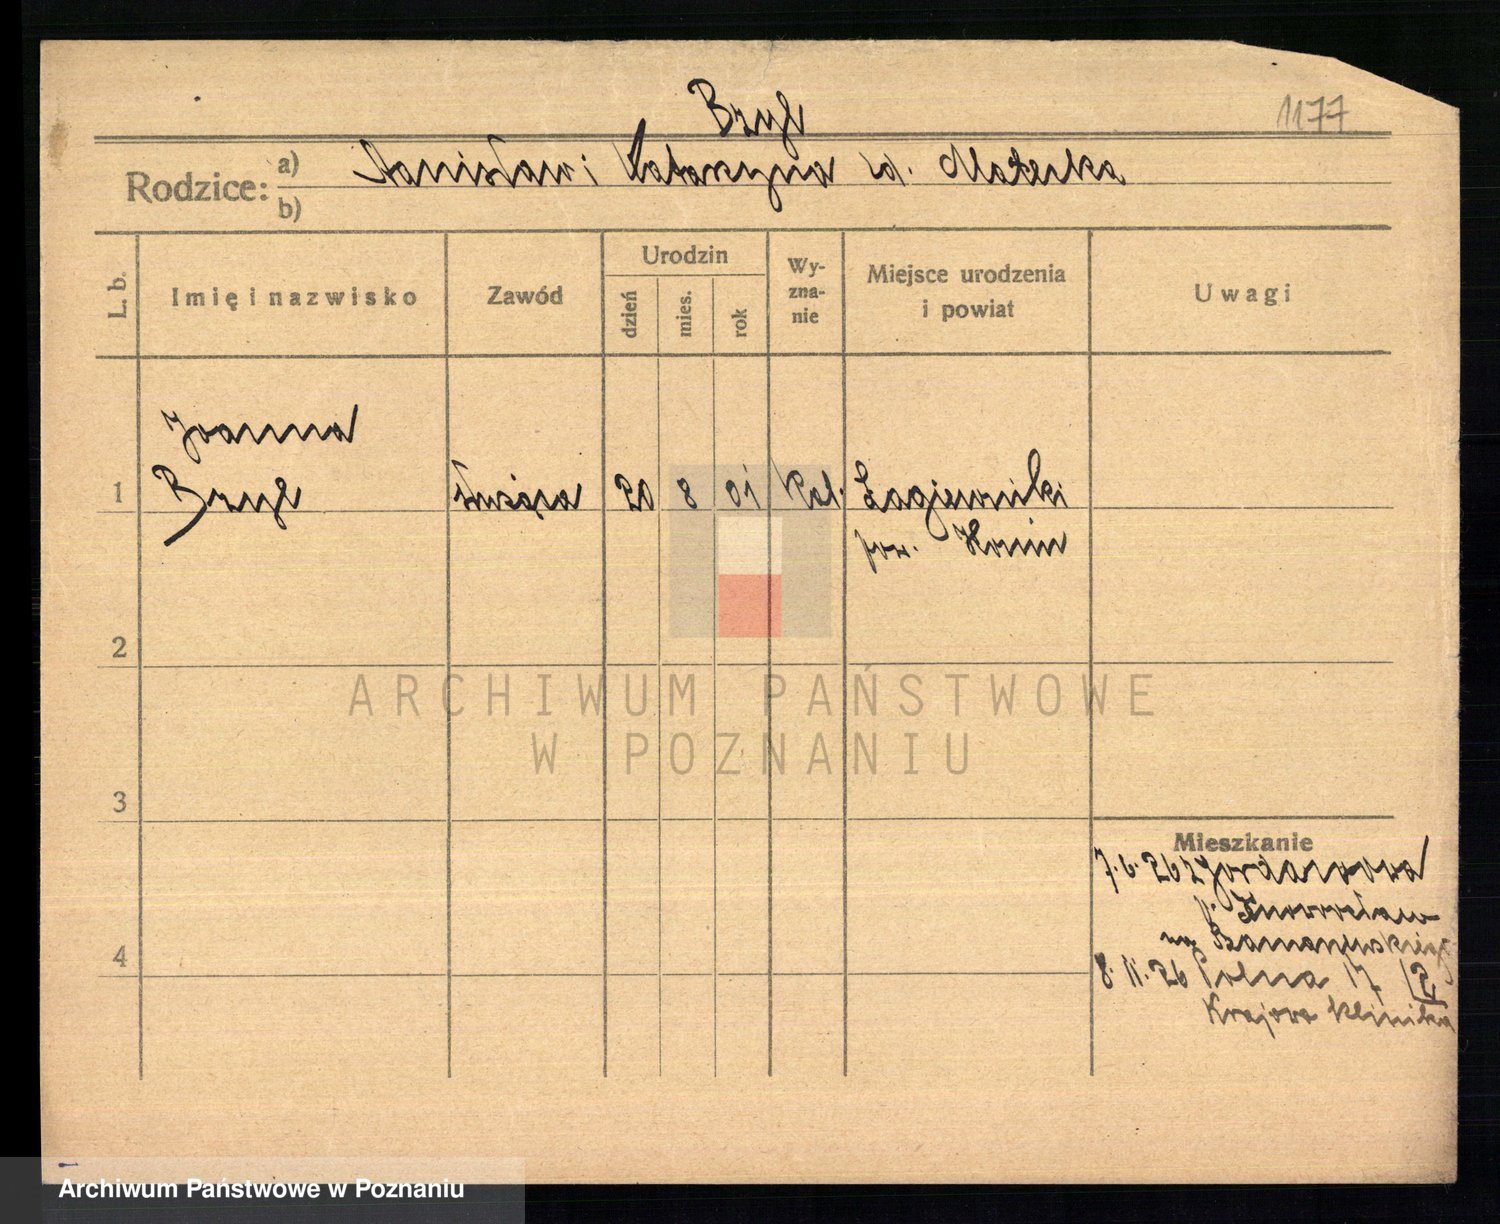 Bryl
1177
Rodzice: a) Stanisław i Katarzyna ur. Matecka
b)
L. b.
Imię i nazwisko
Zawód
Urodzin
dzień
mies.
rok
Wy-
zna-
nie
Miejsce urodzenia
i powiat
Uwagi
Joanna
1 Bryl służąca 20 8 01 kat. Łagiewniki
pow. Konin
2
ARCHIWUM PAŃSTWOWE
W POZNANIU
3
Mieszkanie
7.6.26
p. Inowrocław
4
8.11.26 Polna 17
Krajowa Klinika
Archiwum Państwowe w Poznaniu